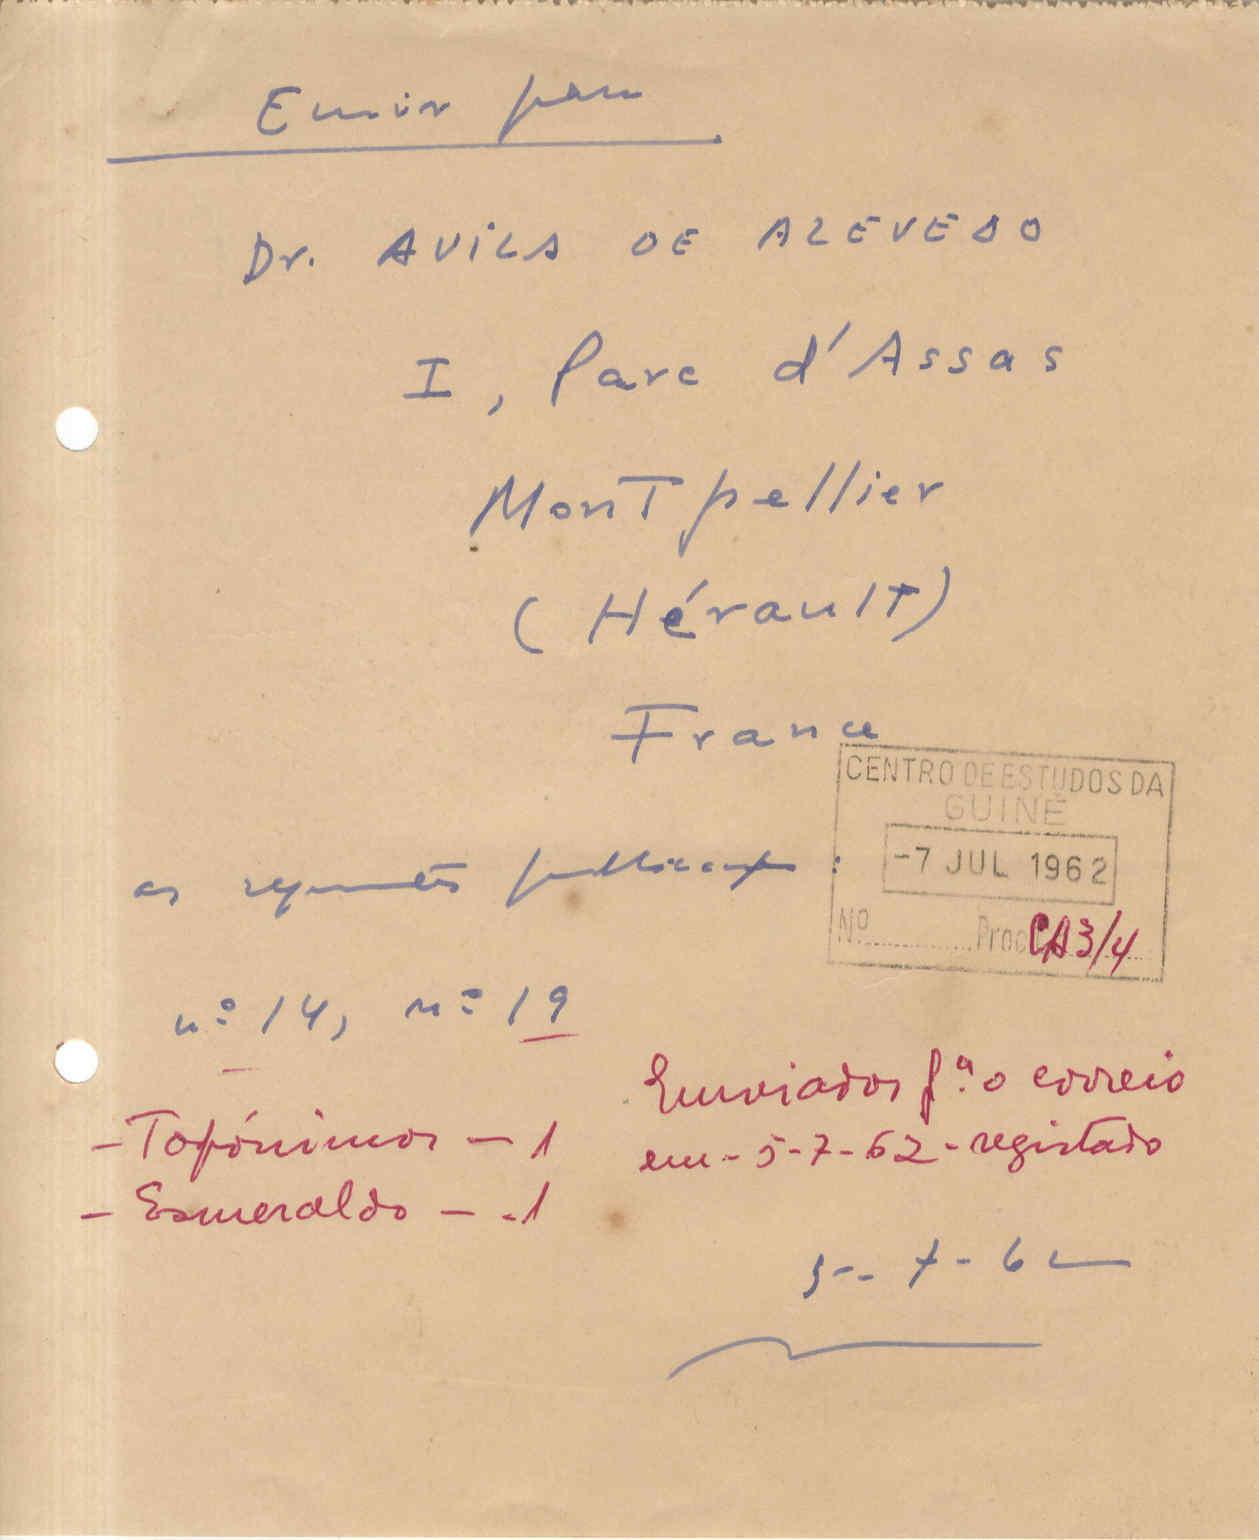 Enviar para
Dr. AVILA DE AZEVEDO
I, Parc d'Assas
Montpellier
(Hérault)
France
CENTRO DE ESTUDOS DA
GUINÉ
-7 JUL 1962
Nº Proc CA3/4
as seguintes publicações:
nº 14, nº 19
Enviados pª o correio
em - 5-7-62 - registado
- Topónimos - 1
- Esmeraldo - 1
5-7-62